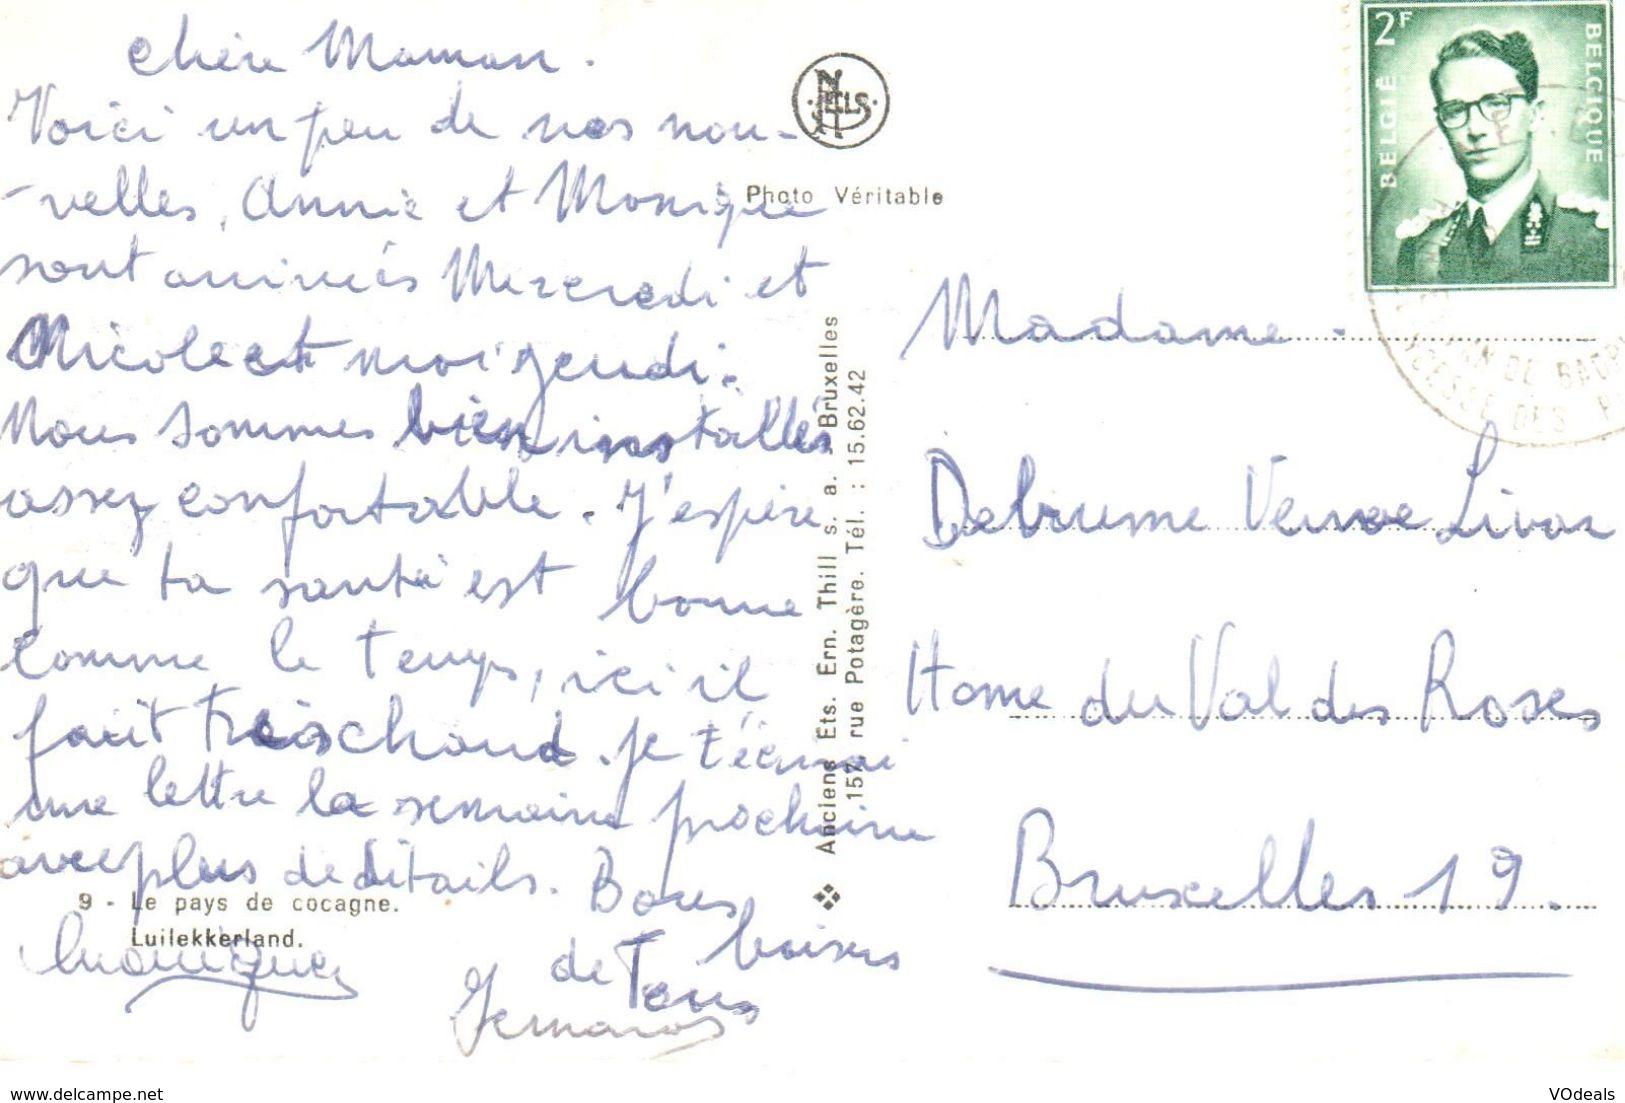 Chère Maman.
Voici un peu de nos nou-
-velles, Annie et Monique
sont arrivées Mercredi et
Nicole et moi jeudi.
Nous sommes bien installés
assez confortable. J'espère
que ta santé est bonne
comme le temps, ici il
fait très chaud. je t'écrirai
une lettre la semaine prochaine
avec plus de détails. Bons
baisers
de Tous
Monique
9 - Le pays de cocagne.
Luilekkerland.
NELS
Photo Véritable
Anciens Ets. Ern. Thill s. a. Bruxelles
157, rue Potagère. Tél. : 15.62.42
2F
BELGIE
BELGIQUE
Madame.
Debrume
Home du Val des Roses
Bruxelles 19.
delcampe.net
VOdeals